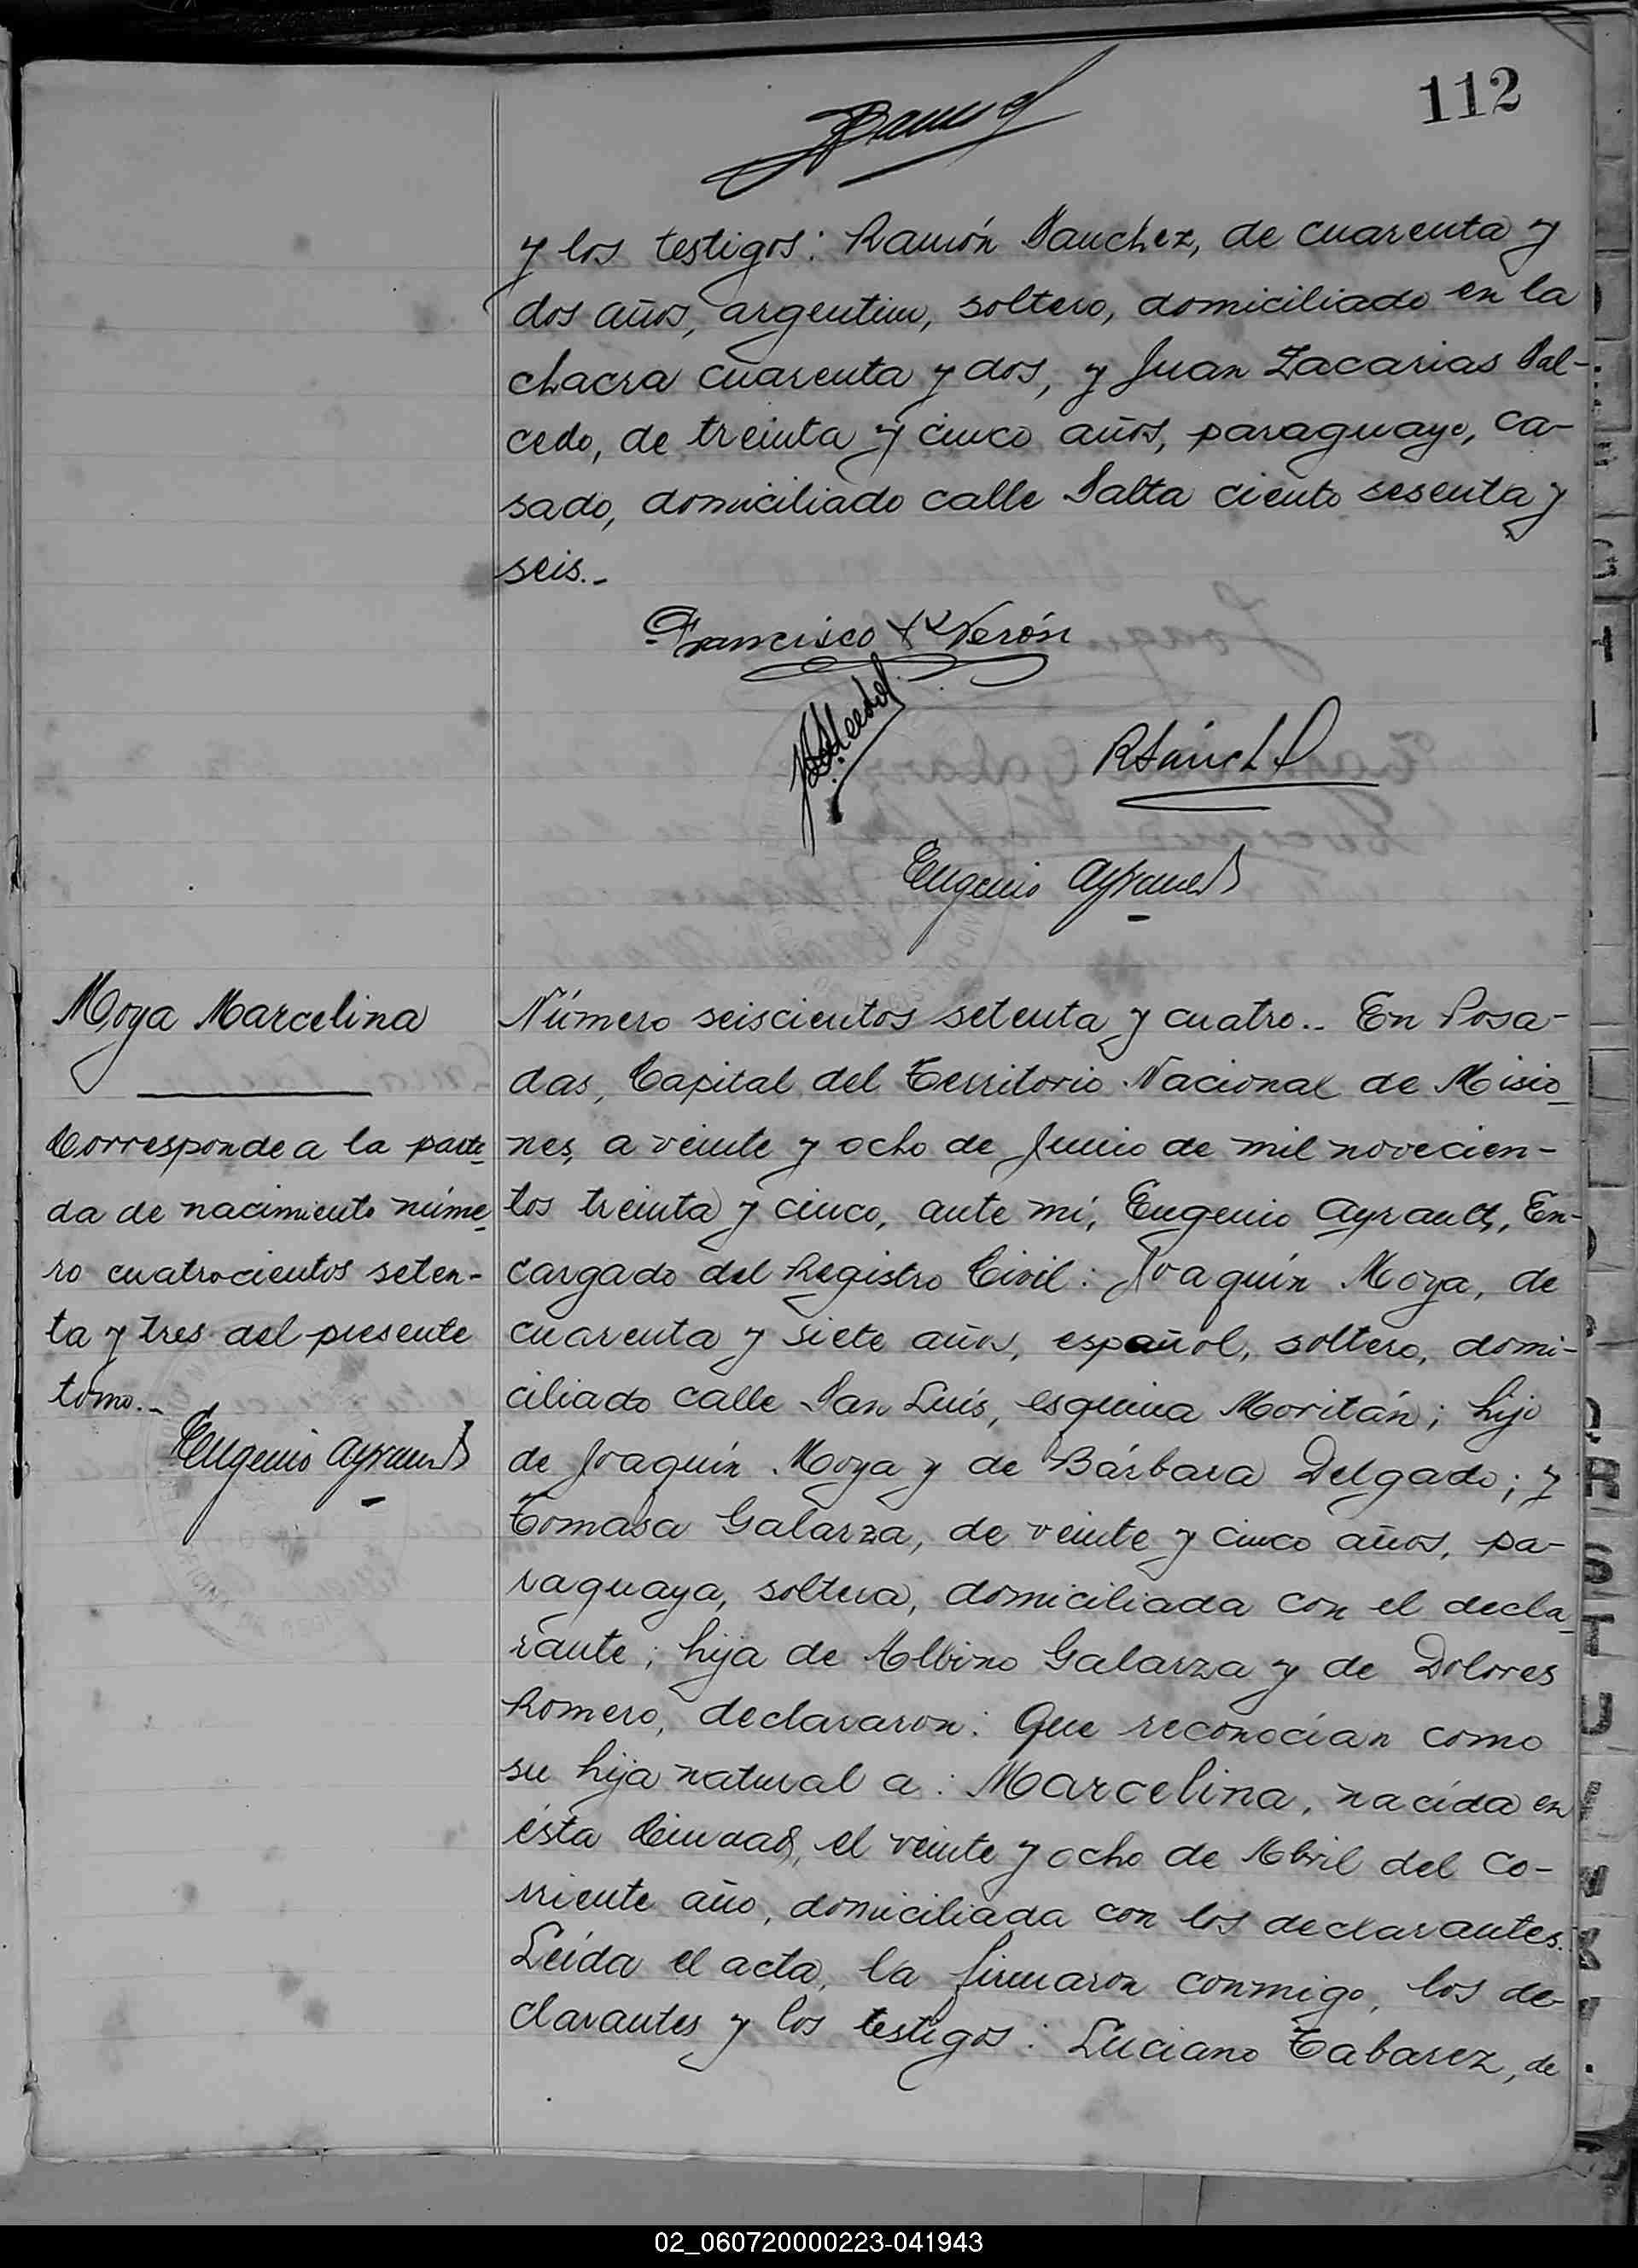 112
y los testigos: Ramón Sanchez, de cuarenta y
dos años, argentino, soltero, domiciliado en la
chacra cuarenta y dos, y Juan Zacarias Sal-
cedo, de treinta y cinco años, paraguayo, ca-
sado, domiciliado calle Salta ciento sesenta y
seis.-
Francisco Verón
RSánch
Eugenio Ayrault
Moya Marcelina
Corresponde a la parti-
da de nacimiento núme-
ro cuatrocientos seten-
ta y tres del presente
tomo.-
Eugenio Ayrault
Número seiscientos setenta y cuatro.- En Posa-
das, Capital del Territorio Nacional de Misio-
nes, a veinte y ocho de Junio de mil novecien-
tos treinta y cinco, ante mí, Eugenio Ayrault, En-
cargado del Registro Civil: Joaquín Moya, de
cuarenta y siete años, español, soltero, domi-
ciliado calle San Luís, esquina Moritán; hijo
de Joaquín Moya y de Bárbara Delgado; y
Tomasa Galarza, de veinte y cinco años, pa-
raguaya, soltera, domiciliada con el decla-
rante; hija de Albino Galarza y de Dolores
Romero, declararon: Que reconocían como
su hija natural a: Marcelina, nacida en
ésta Ciudad, el veinte y ocho de Abril del co-
rriente año, domiciliada con los declarantes.
Leída el acta, la firmaron conmigo, los de-
clarantes y los testigos: Luciano Tabarez, de
02_060720000223-041943